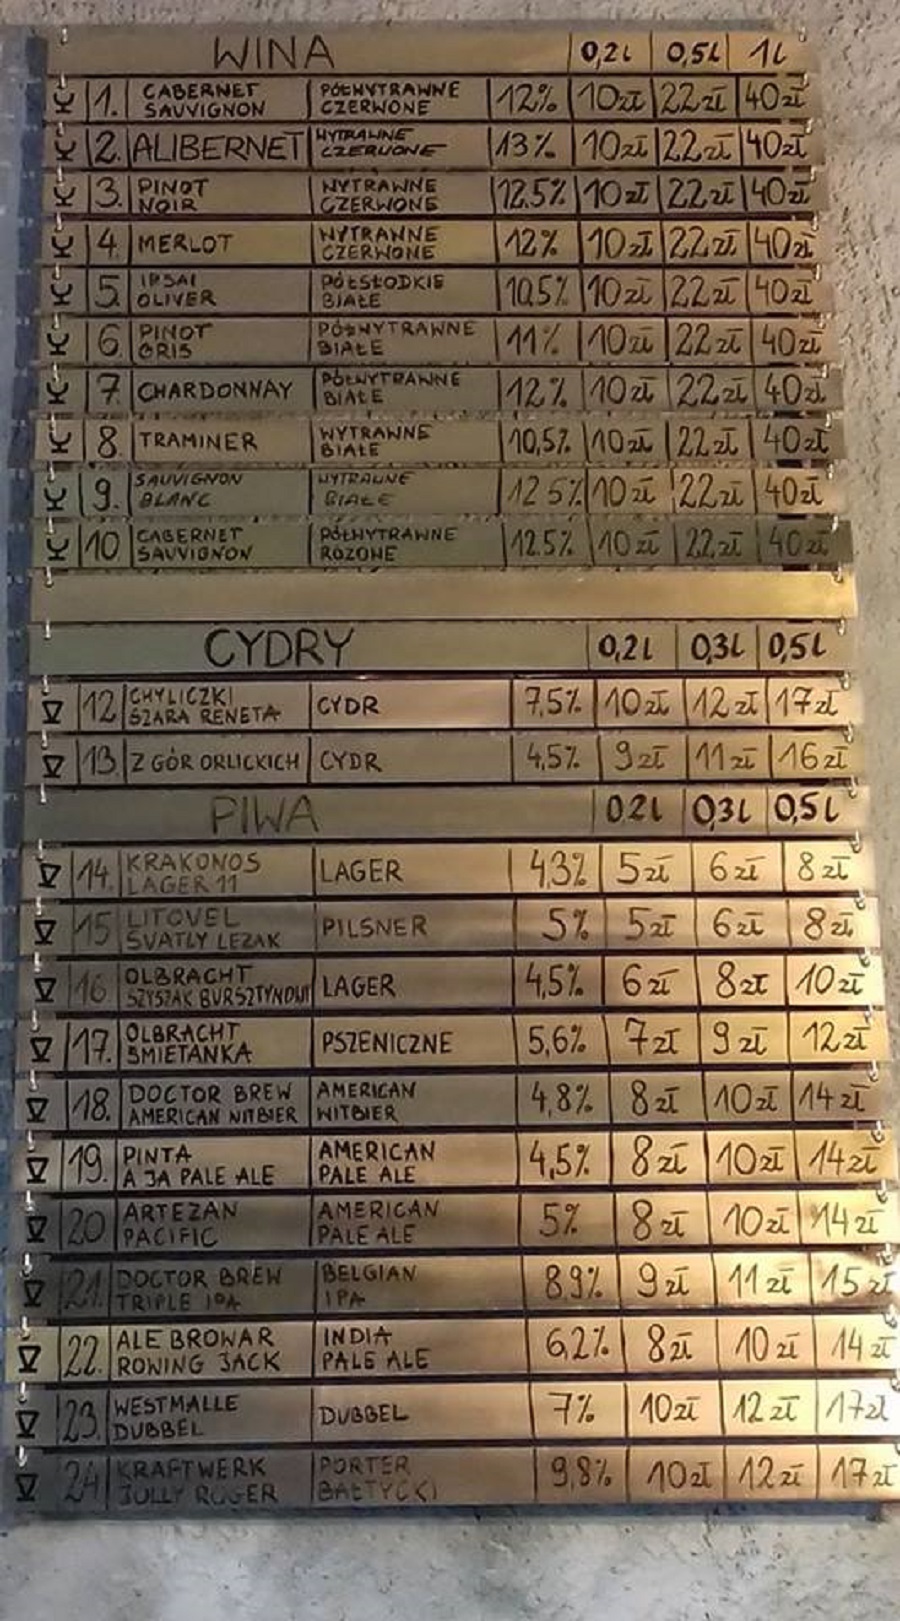 WINA 0,2l 0,5l 1l
1. CABERNET SAUVIGNON PÓŁWYTRAWNE CZERWONE 12% 10zł 22zł 40zł
2. ALIBERNET WYTRAWNE CZERWONE 13% 10zł 22zł 40zł
3. PINOT NOIR WYTRAWNE CZERWONE 12.5% 10zł 22zł 40zł
4. MERLOT WYTRAWNE CZERWONE 12% 10zł 22zł 40zł
5. IRSAI OLIVER PÓŁSŁODKIE BIAŁE 10,5% 10zł 22zł 40zł
6. PINOT GRIS PÓŁWYTRAWNE BIAŁE 11% 10zł 22zł 40zł
7. CHARDONNAY PÓŁWYTRAWNE BIAŁE 12% 10zł 22zł 40zł
8. TRAMINER WYTRAWNE BIAŁE 10,5% 10zł 22zł 40zł
9. SAUVIGNON BLANC WYTRAWNE BIAŁE 12 5% 10zł 22zł 40zł
10 CABERNET SAUVIGNON PÓŁWYTRAWNE RÓŻONE 12.5% 10zł 22zł 40zł
CYDRY 0,2l 0,3l 0,5l
12 CHYLICZKI SZARA RENETA CYDR 7,5% 10zł 12zł 17zł
13. Z GÓR ORLICKICH CYDR 4,5% 9zł 11zł 16zł
PIWA 0,2l 0,3l 0,5l
14. KRAKONOS LAGER 11 LAGER 4,3% 5zł 6zł 8zł
15 LITOVEL SVATLY LEZAK PILSNER 5% 5zł 6zł 8zł
16 OLBRACHT SZYSZAK BURSZTYNOWY LAGER 4,5% 6zł 8zł 10zł
17. OLBRACHT SMIETANKA PSZENICZNE 5,6% 7zł 9zł 12zł
18. DOCTOR BREW AMERICAN WITBIER AMERICAN WITBIER 4,8% 8zł 10zł 14zł
19. PINTA A JA PALE ALE AMERICAN PALE ALE 4,5% 8zł 10zł 14zł
20 ARTEZAN PACIFIC AMERICAN PALE ALE 5% 8zł 10zł 14zł
21. DOCTOR BREW TRIPLE IPA BELGIAN IPA 8,9% 9zł 11zł 15zł
22. ALE BROWAR ROWING JACK INDIA PALE ALE 6,2% 8zł 10zł 14zł
23. WESTMALLE DUBBEL DUBBEL 7% 10zł 12zł 17zł
24 KRAFTWERK JOLLY ROGER PORTER BAŁTYCKI 9,8% 10zł 12zł 17zł